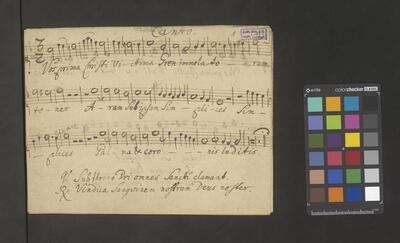 Canto.
Vos prima Christi Victima Grex immolato - rum
tener Aram Sub ipsam Simplices Sim-
plices Palma & coro - - - nis luditis
V. Sub throno Dei omnes Sancti clamant.
R. Vindica Sanguinem nostrum Deus noster.
colorchecker CLASSIC